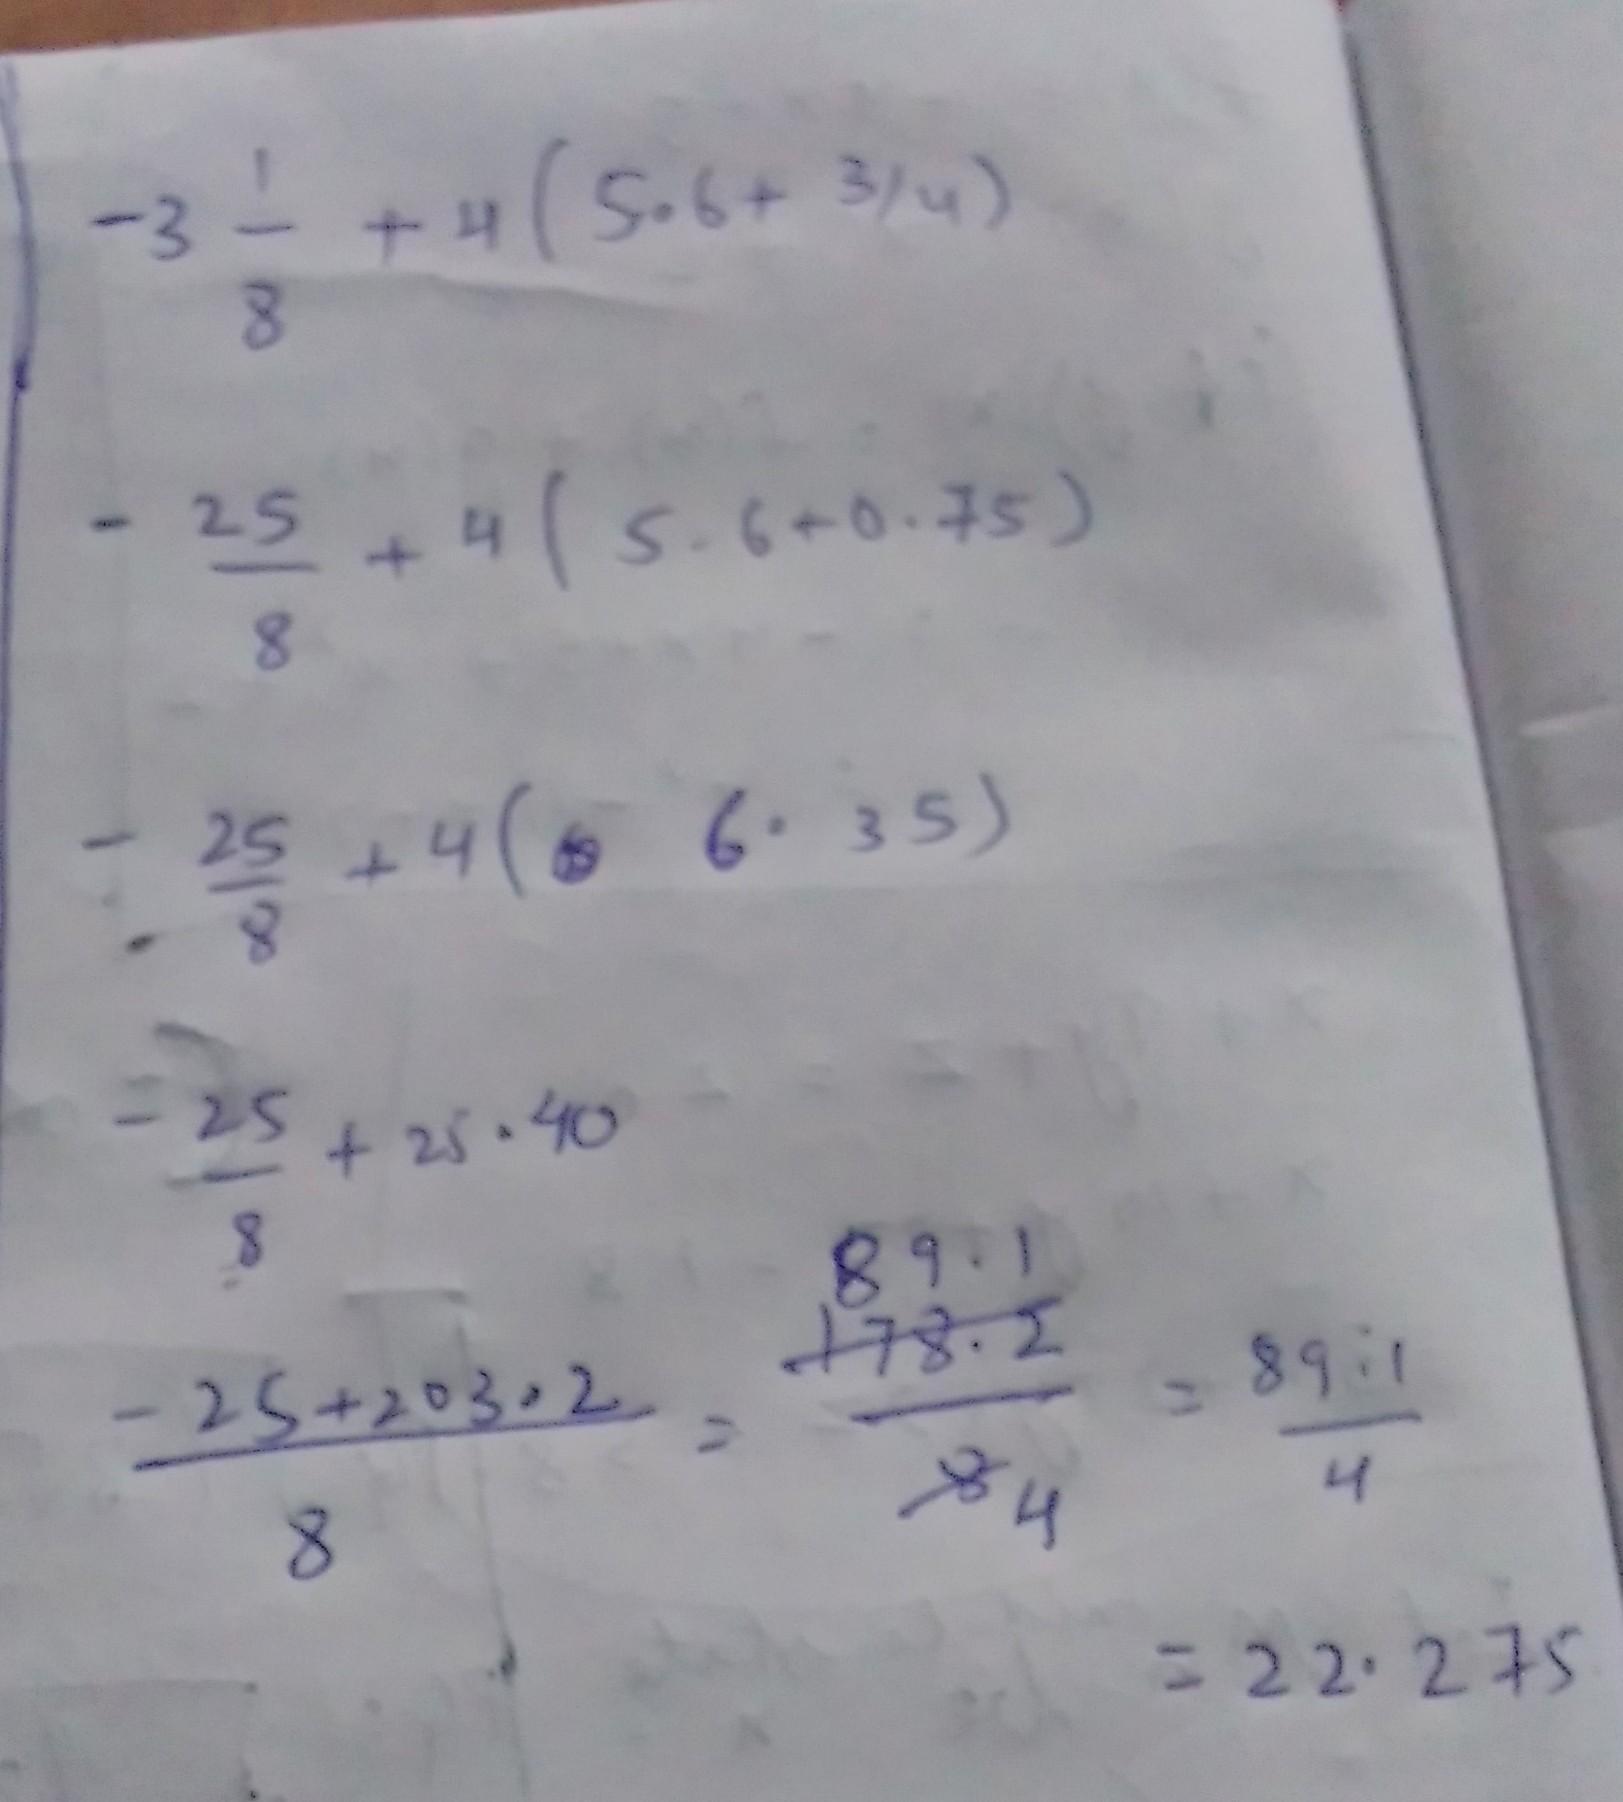 -3 1/8 + 4(5.6 + 3/4)
- 25/8 + 4(5.6+0.75)
- 25/8 + 4( 6.35)
- 25/8 + 25.40
-25+203.2/8 = 178.2/8 89.1/4 = 89.1/4
= 22.275